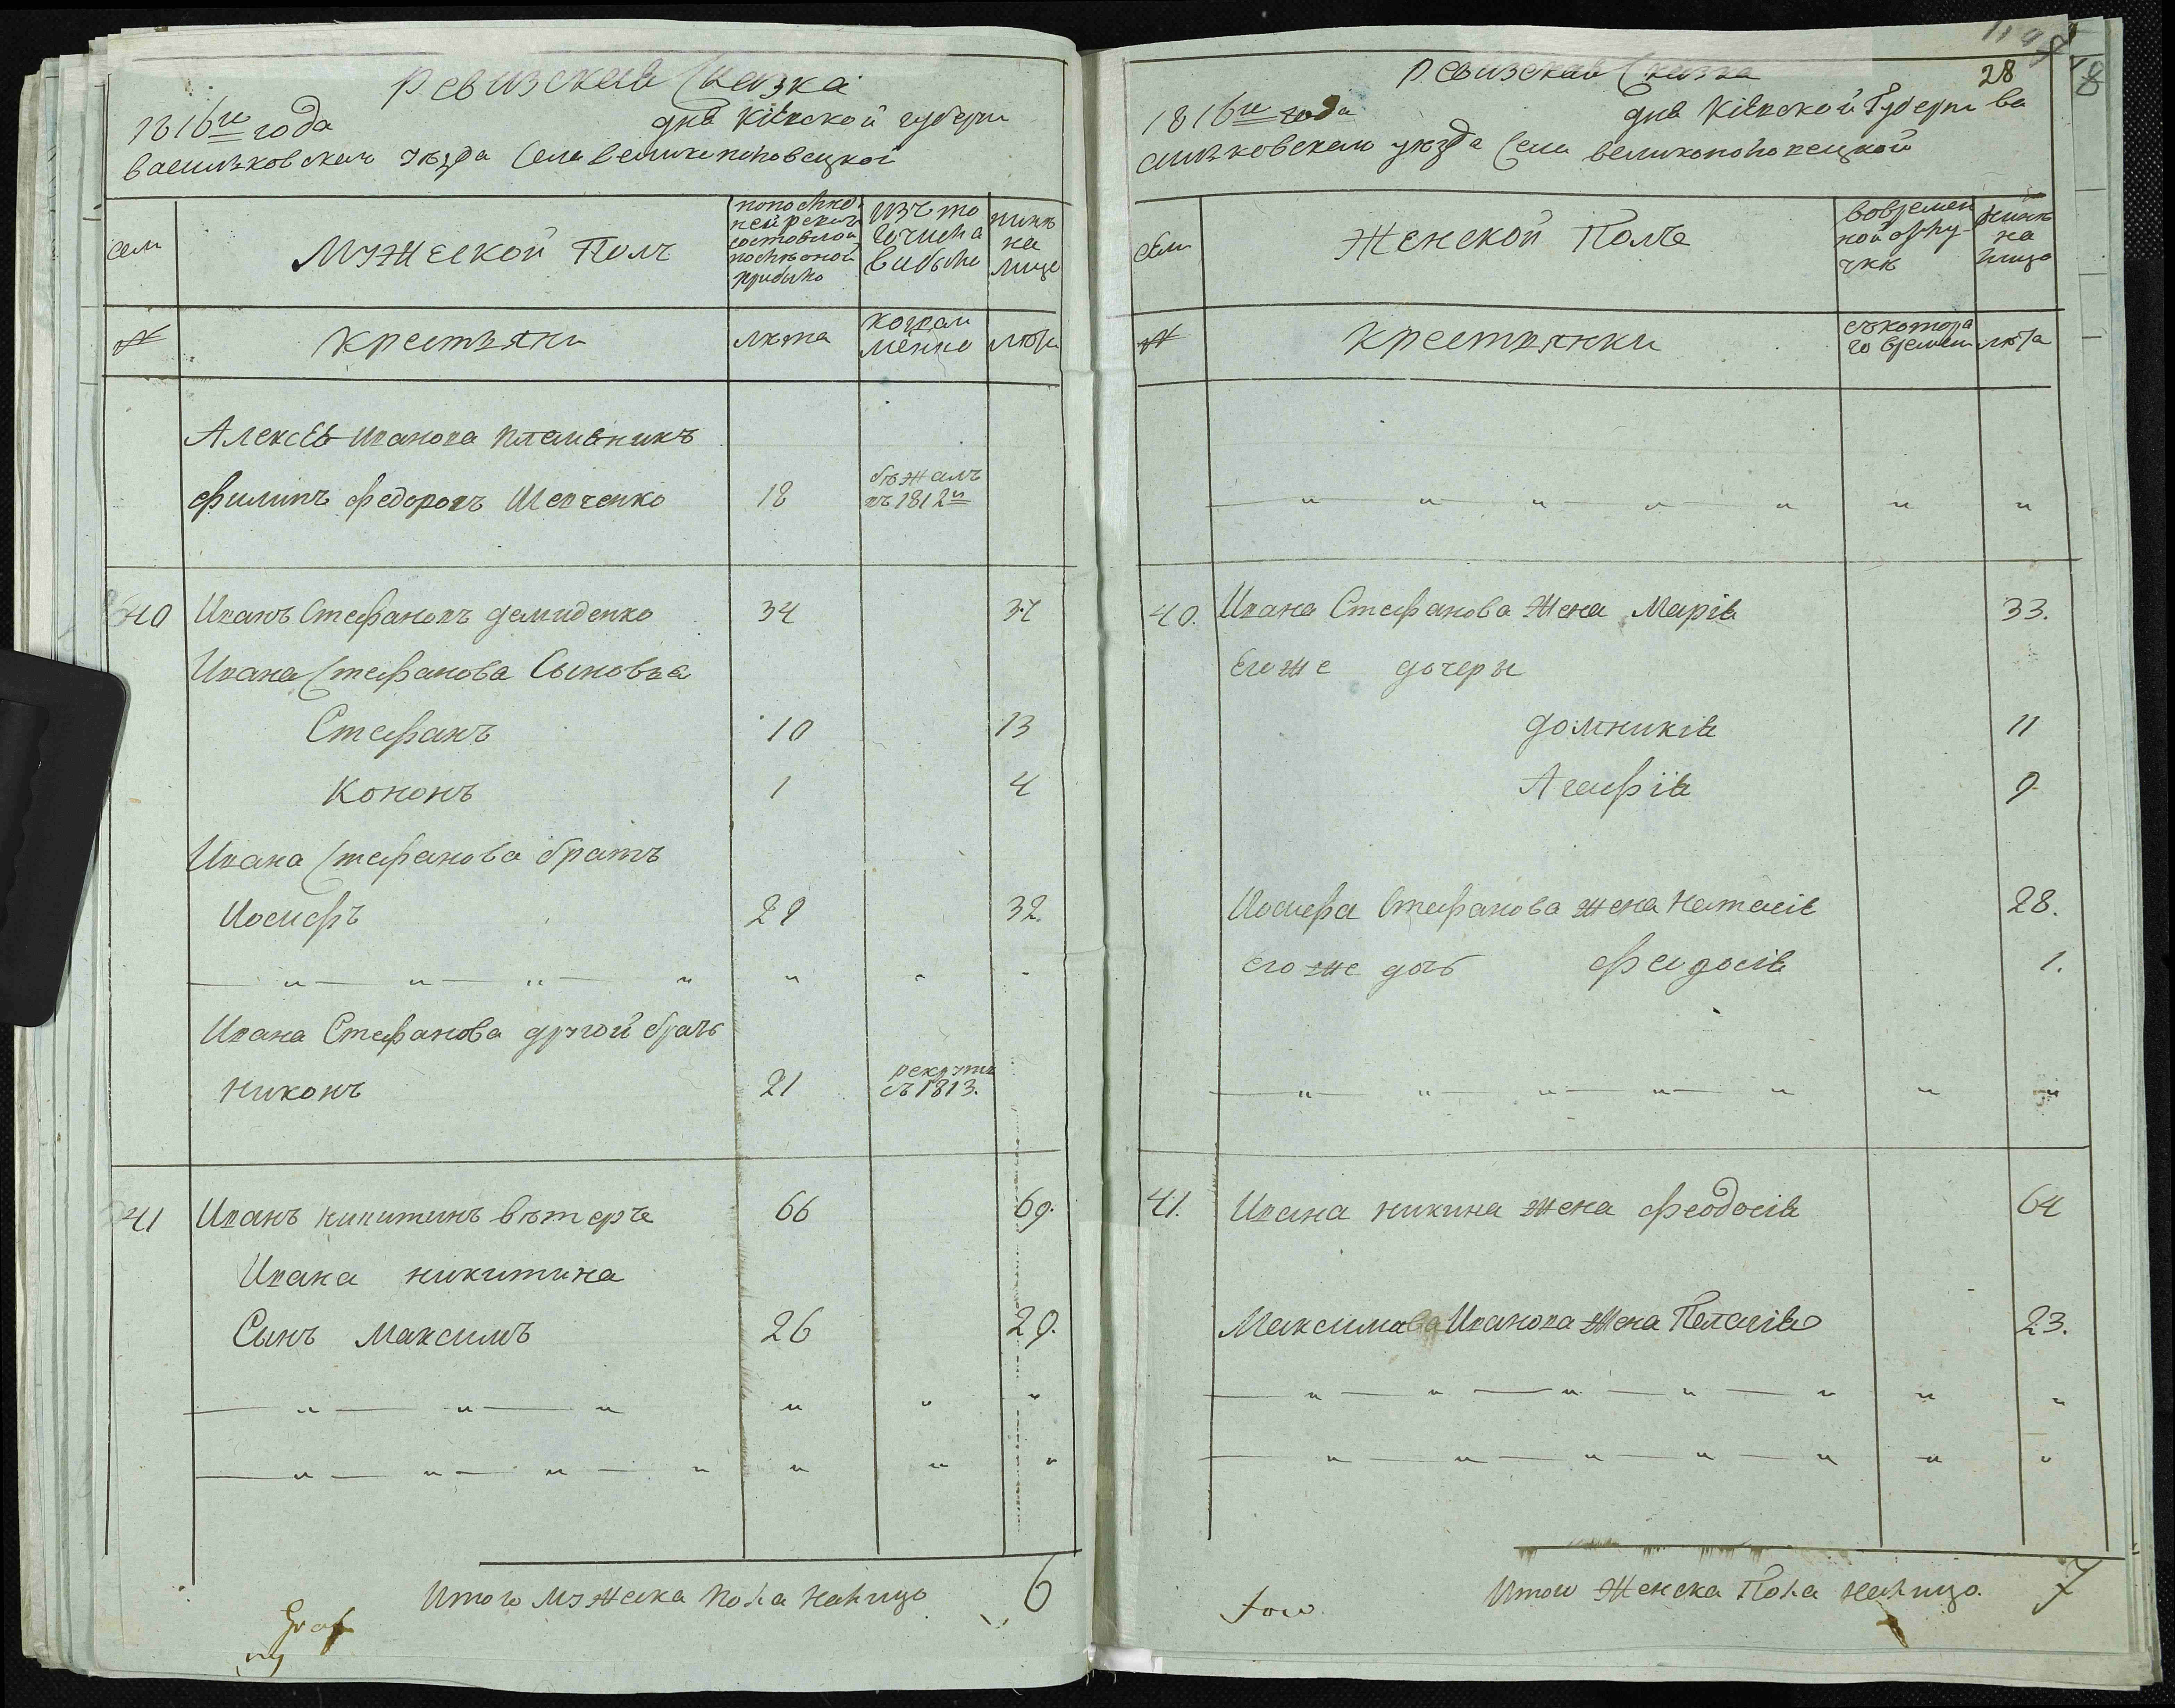 Ревизская Сказка
1816го года дня Кіевской губерни
васильковскаго уезда Села великополовецкой
Семи
Мужеской Полъ
попоследней ревизи состояло и после оной прибыло
Изъ того числа выбыло
ныне на лицо
№
крестьяни
лѣта
когда именно
лѣта
Алексѣя Иванова племянникъ
Филипъ Федоровъ Шевченко 18 бѣжалъ въ 1812м
40 Иванъ Стефановъ демиденко 34 37
Ивана Стефанова Сыновья
Стефанъ 10 13
Кононъ 1 4
Ивана Стефанова братъ
Иосифъ 29 32.
Ивана Стефанова другой братъ
Никонъ 21 рекрутъ съ 1813.
41 Иванъ никитинъ вѣтеръ 66 69.
Ивана никитина
Сынъ Максимъ 26 29.
Итого мужеска пола налицо 6
Graf
28
Ревизская Сказка
1816го года дня Кіевской Губерни ва
сильковскаго уезда Села великополовецкой
Семи
Женской Полъ
вовременной отлучке
ныне на лицо
№
крестьянки
съ которого времени
лѣта
40. Ивана Стефанова Жена Марія 33.
Его же дочеры
Домникія 11
Агафія 9
Иосифа Стефанова жена Наталія 28.
его же дочь Феодосія 1.
41. Ивана никина жена Феодосія 64
Максима Иванова Жена Пелагія 23.
Итого Женска Пола налицо. 7